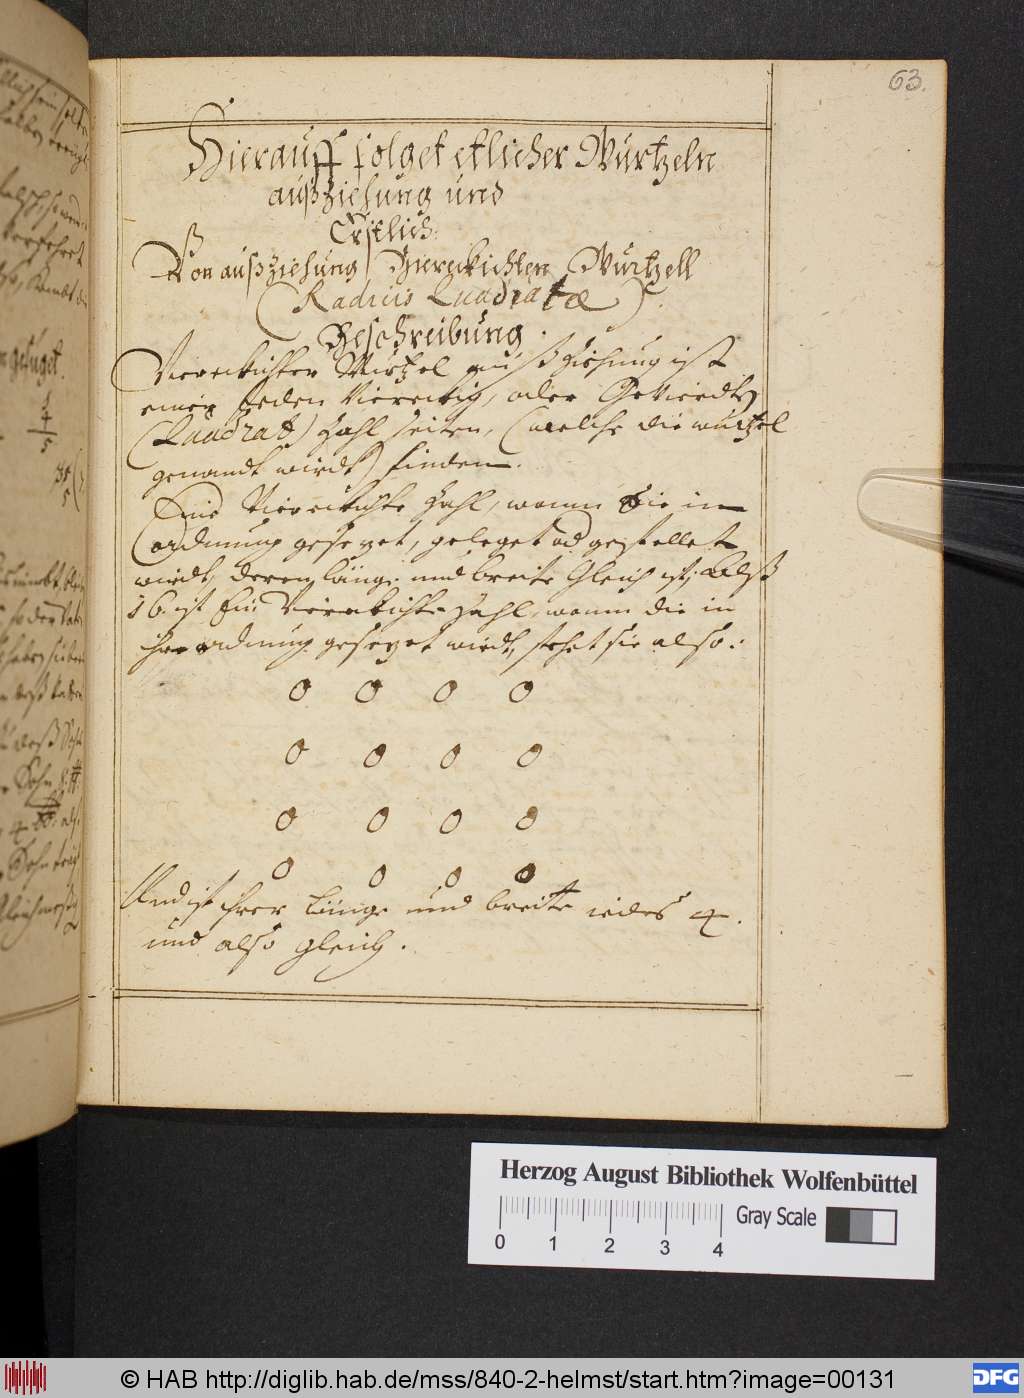 63.
Hierauff folget etlicher Wurtzeln
außziehung und
Erstlich
Von außziehung Viereckichten Wurtzell
(Radicis Quadratæ)
Beschreibung.
Viereckichter Wurtzel außziehung ist
einer jeden Viereckig, oder Gevierdte
(Quadrat) Zahl seiten, (welche die wurtzel
genandt wirdt) finden.
Eine Viereckichte Zahl, wann sie in
ordnung gesezet, geleget od gestellet
wirdt, deren länge und breite Gleich ist, Alß
16. ist Ein Viereckichte Zahl, wann die in
ihre ordnung gesezet wirdt, stehet sie also:
0 0 0 0
0 0 0 0
0 0 0 0
0 0 0 0
Und ist ihrer Länge und breite iedes 4.
und also gleich.
Herzog August Bibliothek Wolfenbüttel
Gray Scale
0 1 2 3 4
© HAB http://diglib.hab.de/mss/840-2-helmst/start.htm?image=00131
DFG